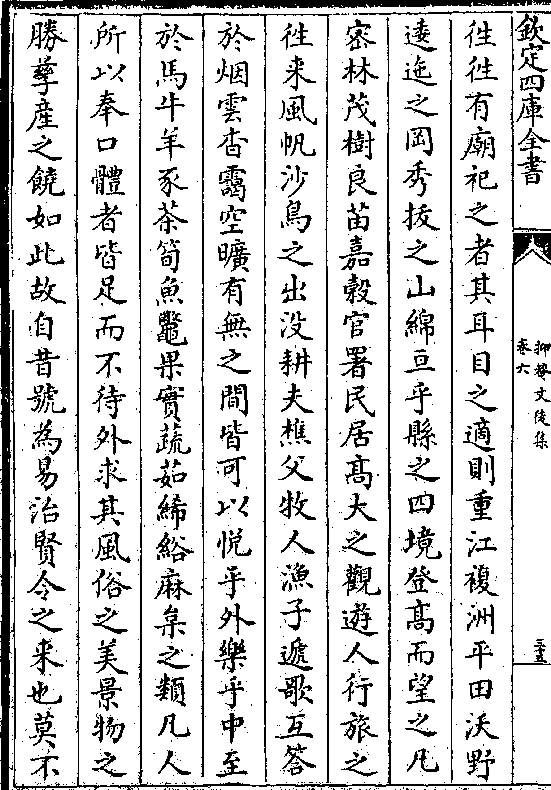 欽定四庫全書
抑菴文後集
卷六
三五
徃徃有廟祀之者其耳目之適則重江複洲平田沃野
逶迤之岡秀拔之山綿亘乎縣之四境登髙而望之凡
宻林茂樹良苗嘉糓官署民居髙大之觀遊人行旅之
徃来風帆沙鳥之出没耕夫樵父牧人漁子遞歌互答
於烟雲杳靄空曠有無之間皆可以悦乎外樂乎中至
於馬牛羊豕茶筍魚鼈果實蔬茹絺綌麻枲之類凡人
所以奉口體者皆足而不待外求其風俗之美景物之
勝孳産之饒如此故自昔號為易治賢令之来也莫不